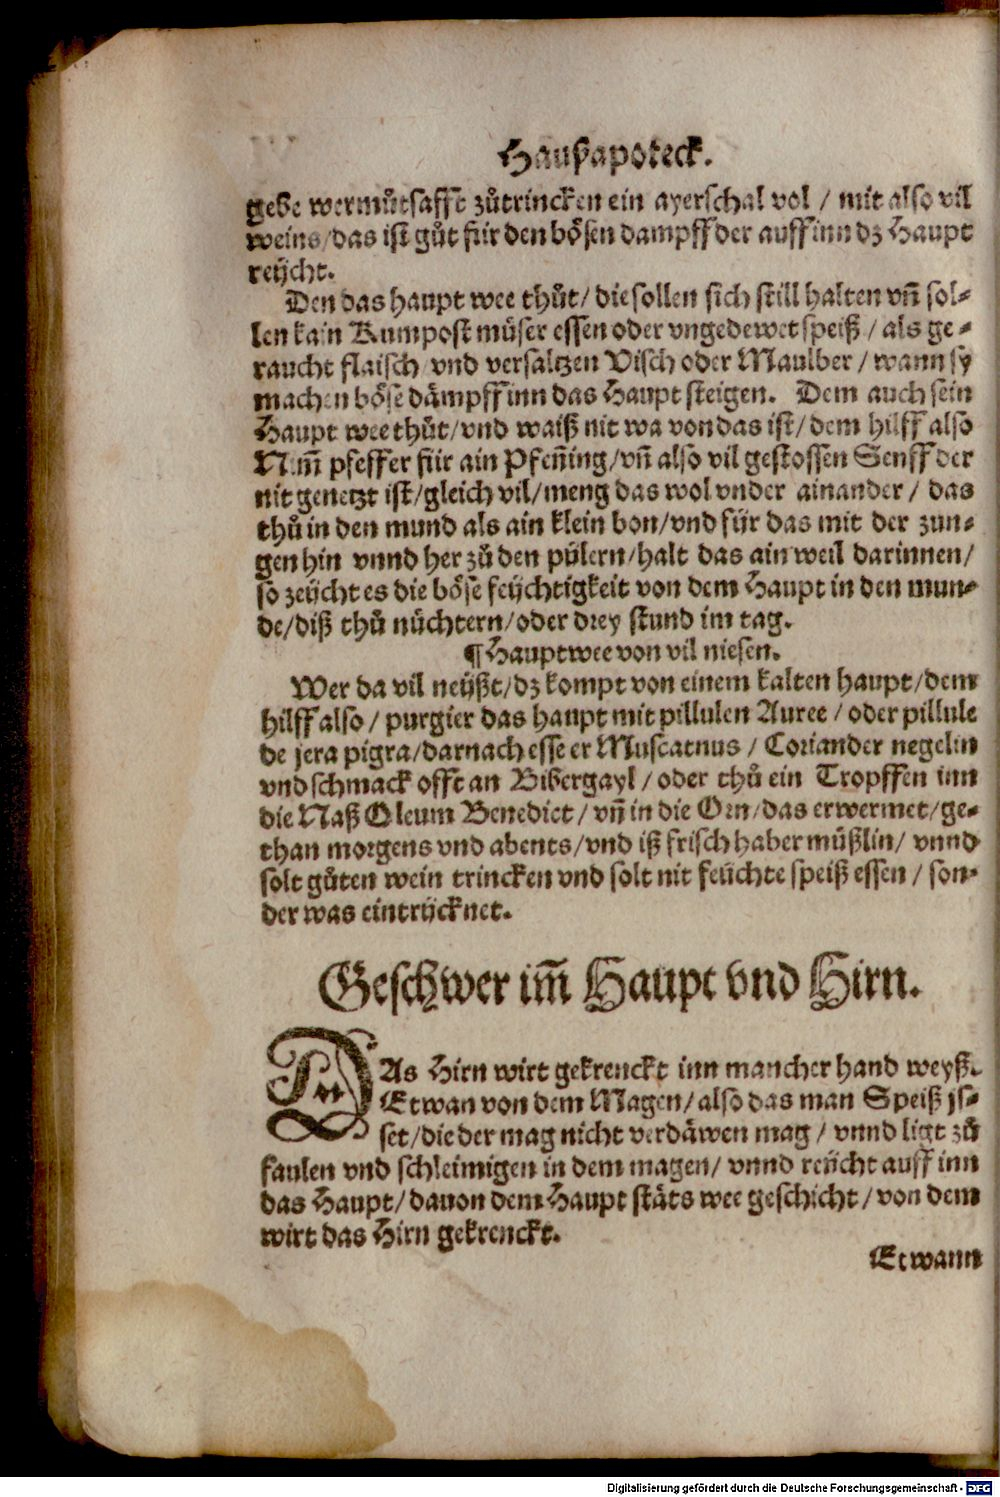 Haußapoteck.
gebe wermůtsafft zůtrincken ein ayerschal vol / mit also vil
weins / das ist gůt für den bösen dampff der auff inn dz Haupt
reücht.
Den das haupt wee thůt / die sollen sich still halten vñ sol-
len kain Kumpost můser essen oder vngedewet speiß / als ge-
raucht flaisch vnd versaltzen Visch oder Maulber / wann sy
machen böse dämpff inn das Haupt steigen. Dem auch sein
Haupt wee thůt / vnd waiß nit wa von das ist / dem hilff also
Nim̃ pfeffer für ain Pfen̄ing / vñ also vil gestossen Senff der
nit genetzt ist / gleich vil / meng das wol vnder ainander / das
thů in den mund als ain klein bon / vnd für das mit der zun-
gen hin vnnd her zů den pülern / halt das ain weil darinnen /
so zeücht es die böse feüchtigkeit von dem Haupt in den mun-
de / diß thů nüchtern / oder drey stund im tag.
¶ Hauptwee von vil niesen.
Wer da vil neüßt / dz kompt von einem kalten haupt / dem
hilff also / purgier das haupt mit pillulen Auree / oder pillule
de jera pigra / darnach esse er Muscatnus / Coriander negelin
vnd schmack offt an Bibergayl / oder thů ein Tropffen inn
die Naß Oleum Benedict / vñ in die Orn / das erwermet / ge-
than morgens vnd abents / vnd iß frisch haber müßlin / vnnd
solt gůten wein trincken vnd solt nit feüchte speiß essen / son-
der was eintrücknet.
Geschwer im̃ Haupt vnd Hirn.
DAs Hirn wirt gekrenckt inn mancher hand weyß.
Etwan von dem Magen / also das man Speiß js-
set / die der mag nicht verdäwen mag / vnnd ligt zů
faulen vnd schleimigen in dem magen / vnnd reücht auff inn
das Haupt / dauon dem Haupt stäts wee geschicht / von dem
wirt das Hirn gekrenckt.
Etwann
Digitalisierung gefördert durch die Deutsche Forschungsgemeinschaft - DFG